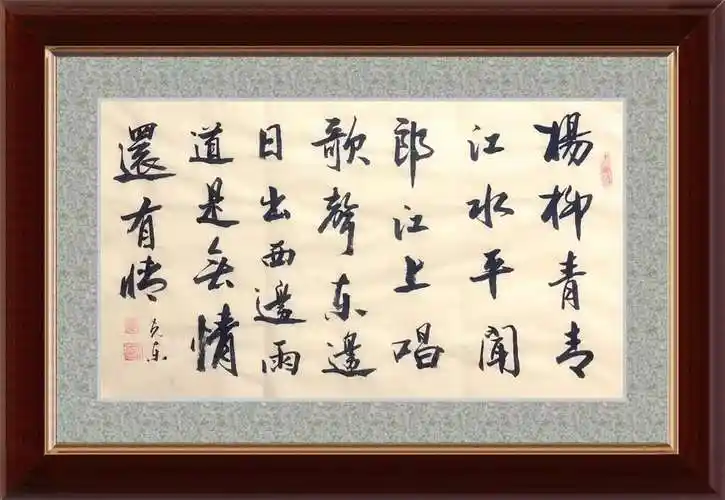 楊柳青青
江水平聞
郎江上唱
歌聲东邊
日出西邊雨
道是無情
還有情